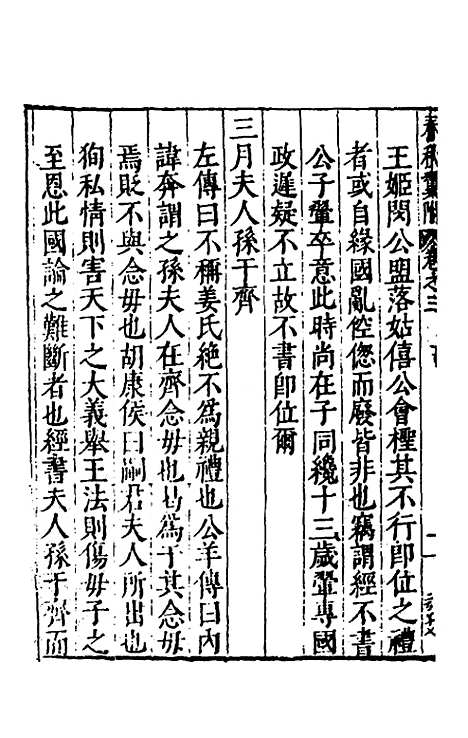 春秋
卷之三
王姬閔公盟落姑僖公會檉其不行即位之禮
者或自緣國亂倥偬而廢皆非也竊謂經不書
公子翬卒意此時尚在子同纔十三歲翬專國
政遲疑不立故不書卽位爾
三月夫人孫于齊
左傳曰不稱姜氏絶不爲親禮也公羊傳曰内
諱奔謂之孫夫人在齊念毋也曷爲于其念毋
焉貶不與念毋也胡康侯曰嗣君夫人所出也
狥私情則害天下之大義舉王法則傷毋子之
至恩此國論之難斷者也經書夫人孫于齊而